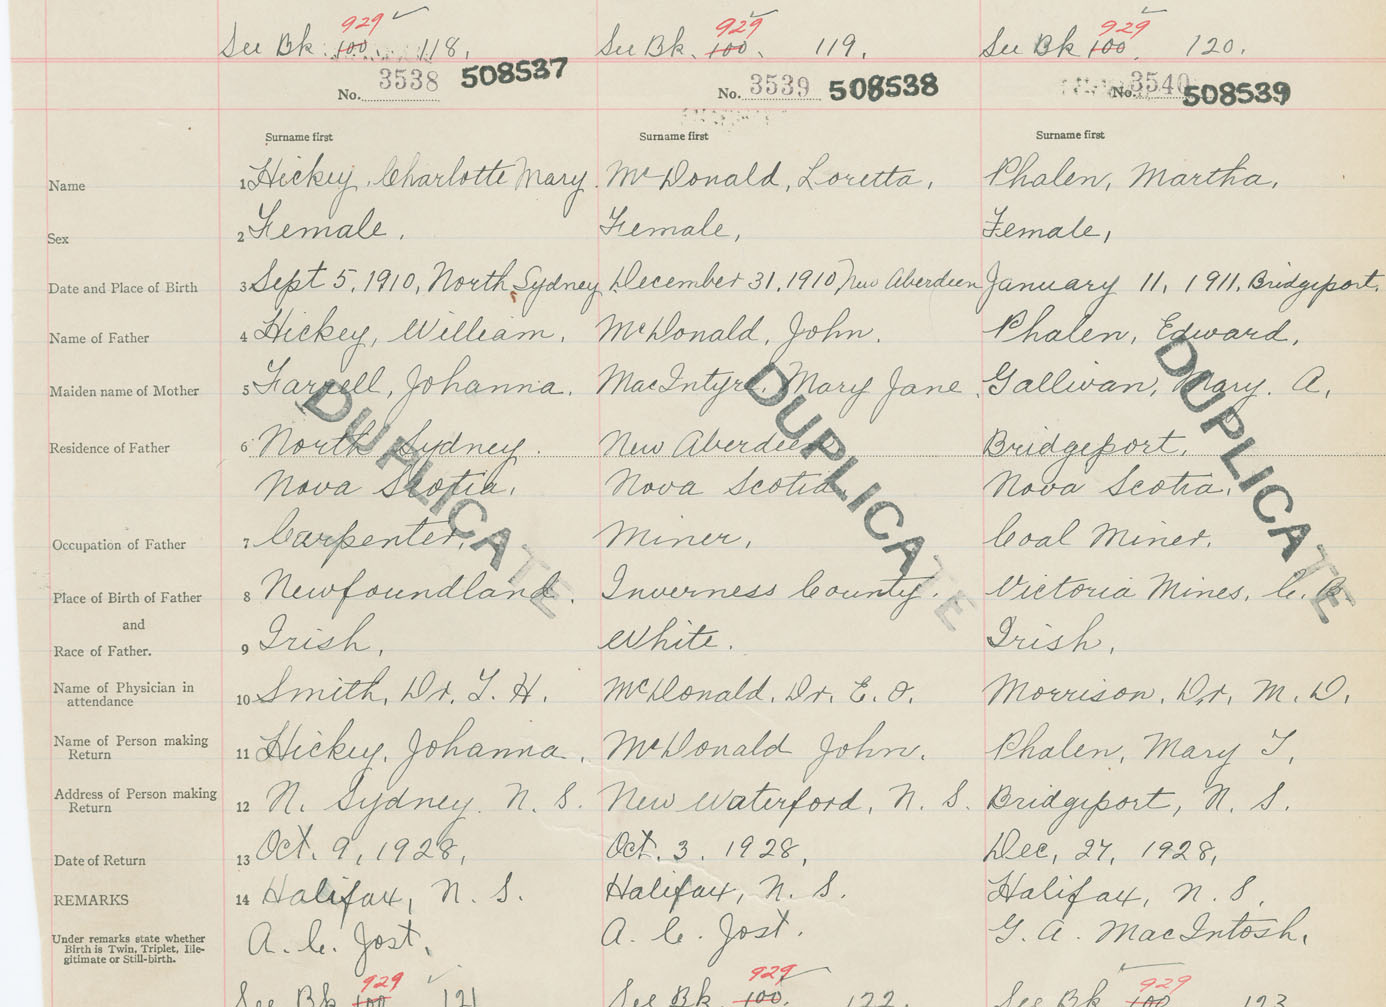 See Bk. 100 929 118.
See Bk. 100 929 119.
See Bk 100 929 120.
No. 3538 508537
No. 3539 508538
No. 3540 508539
Surname first
Surname first
Surname first
Name 1 Hickey, Charlotte Mary. McDonald, Loretta, Phalen, Martha,
Sex 2 Female, Female, Female,
Date and Place of Birth 3 Sept 5, 1910, North Sydney December 31, 1910, New Aberdeen January 11, 1911, Bridgeport,
Name of Father 4 Hickey, William, McDonald, John, Phalen, Edward,
Maiden name of Mother 5 Farrell, Johanna, MacIntyre, Mary Jane, Gallivan, Mary. A,
Residence of Father 6 North Sydney. New Aberdeen Bridgeport,
Nova Scotia, Nova Scotia Nova Scotia,
Occupation of Father 7 Carpenter, Miner, Coal Miner,
Place of Birth of Father 8 Newfoundland. Inverness County. Victoria Mines, C. B
and
Race of Father. 9 Irish, White. Irish,
Name of Physician in
attendance 10 Smith, Dr. T. H. McDonald, Dr. E. O. Morrison, Dr, M. D,
Name of Person making
Return 11 Hickey, Johanna, McDonald John, Phalen, Mary T,
Address of Person making
Return 12 N. Sydney. N. S. New Waterford, N. S. Bridgeport, N. S.
Date of Return 13 Oct. 9, 1928, Oct. 3, 1928, Dec, 27, 1928,
REMARKS 14 Halifax, N. S. Halifax, N. S. Halifax, N. S,
Under remarks state whether
Birth is Twin, Triplet, Ille-
gitimate or Still-birth. A. C. Jost, A. C. Jost. G. A. MacIntosh,
DUPLICATE
DUPLICATE
DUPLICATE
See Bk 100 929 121
See Bk 100. 929 122
See Bk 100 929 123